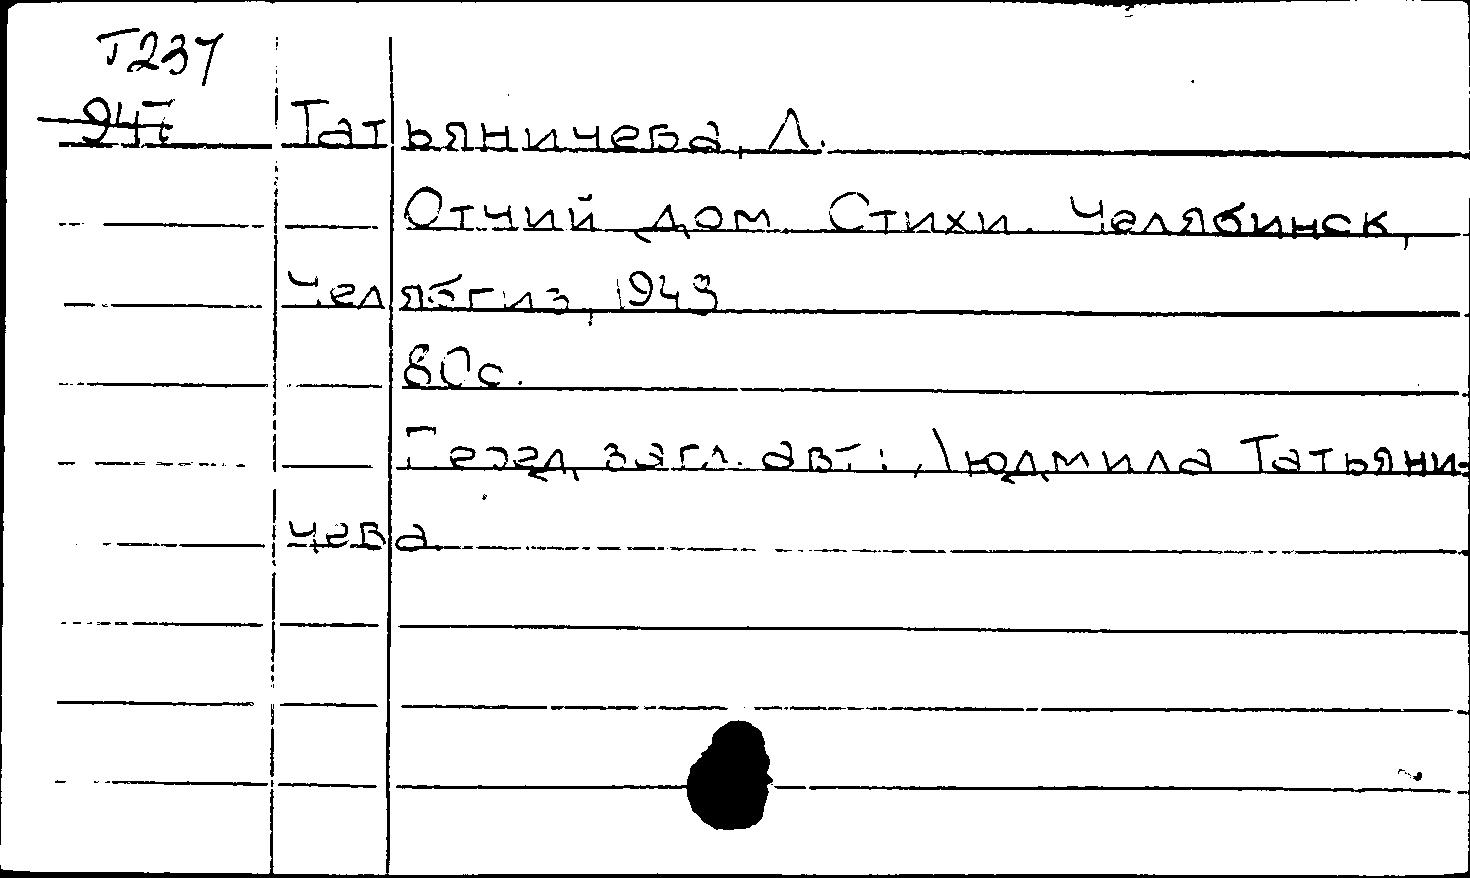 Т237
94Т
Татьяничева, Л.
Отчий дом. Стихи. Челябинск,
Челябгиз, 1949
80с.
Перед загл. авт.: Людмила Татьяни-
чева.